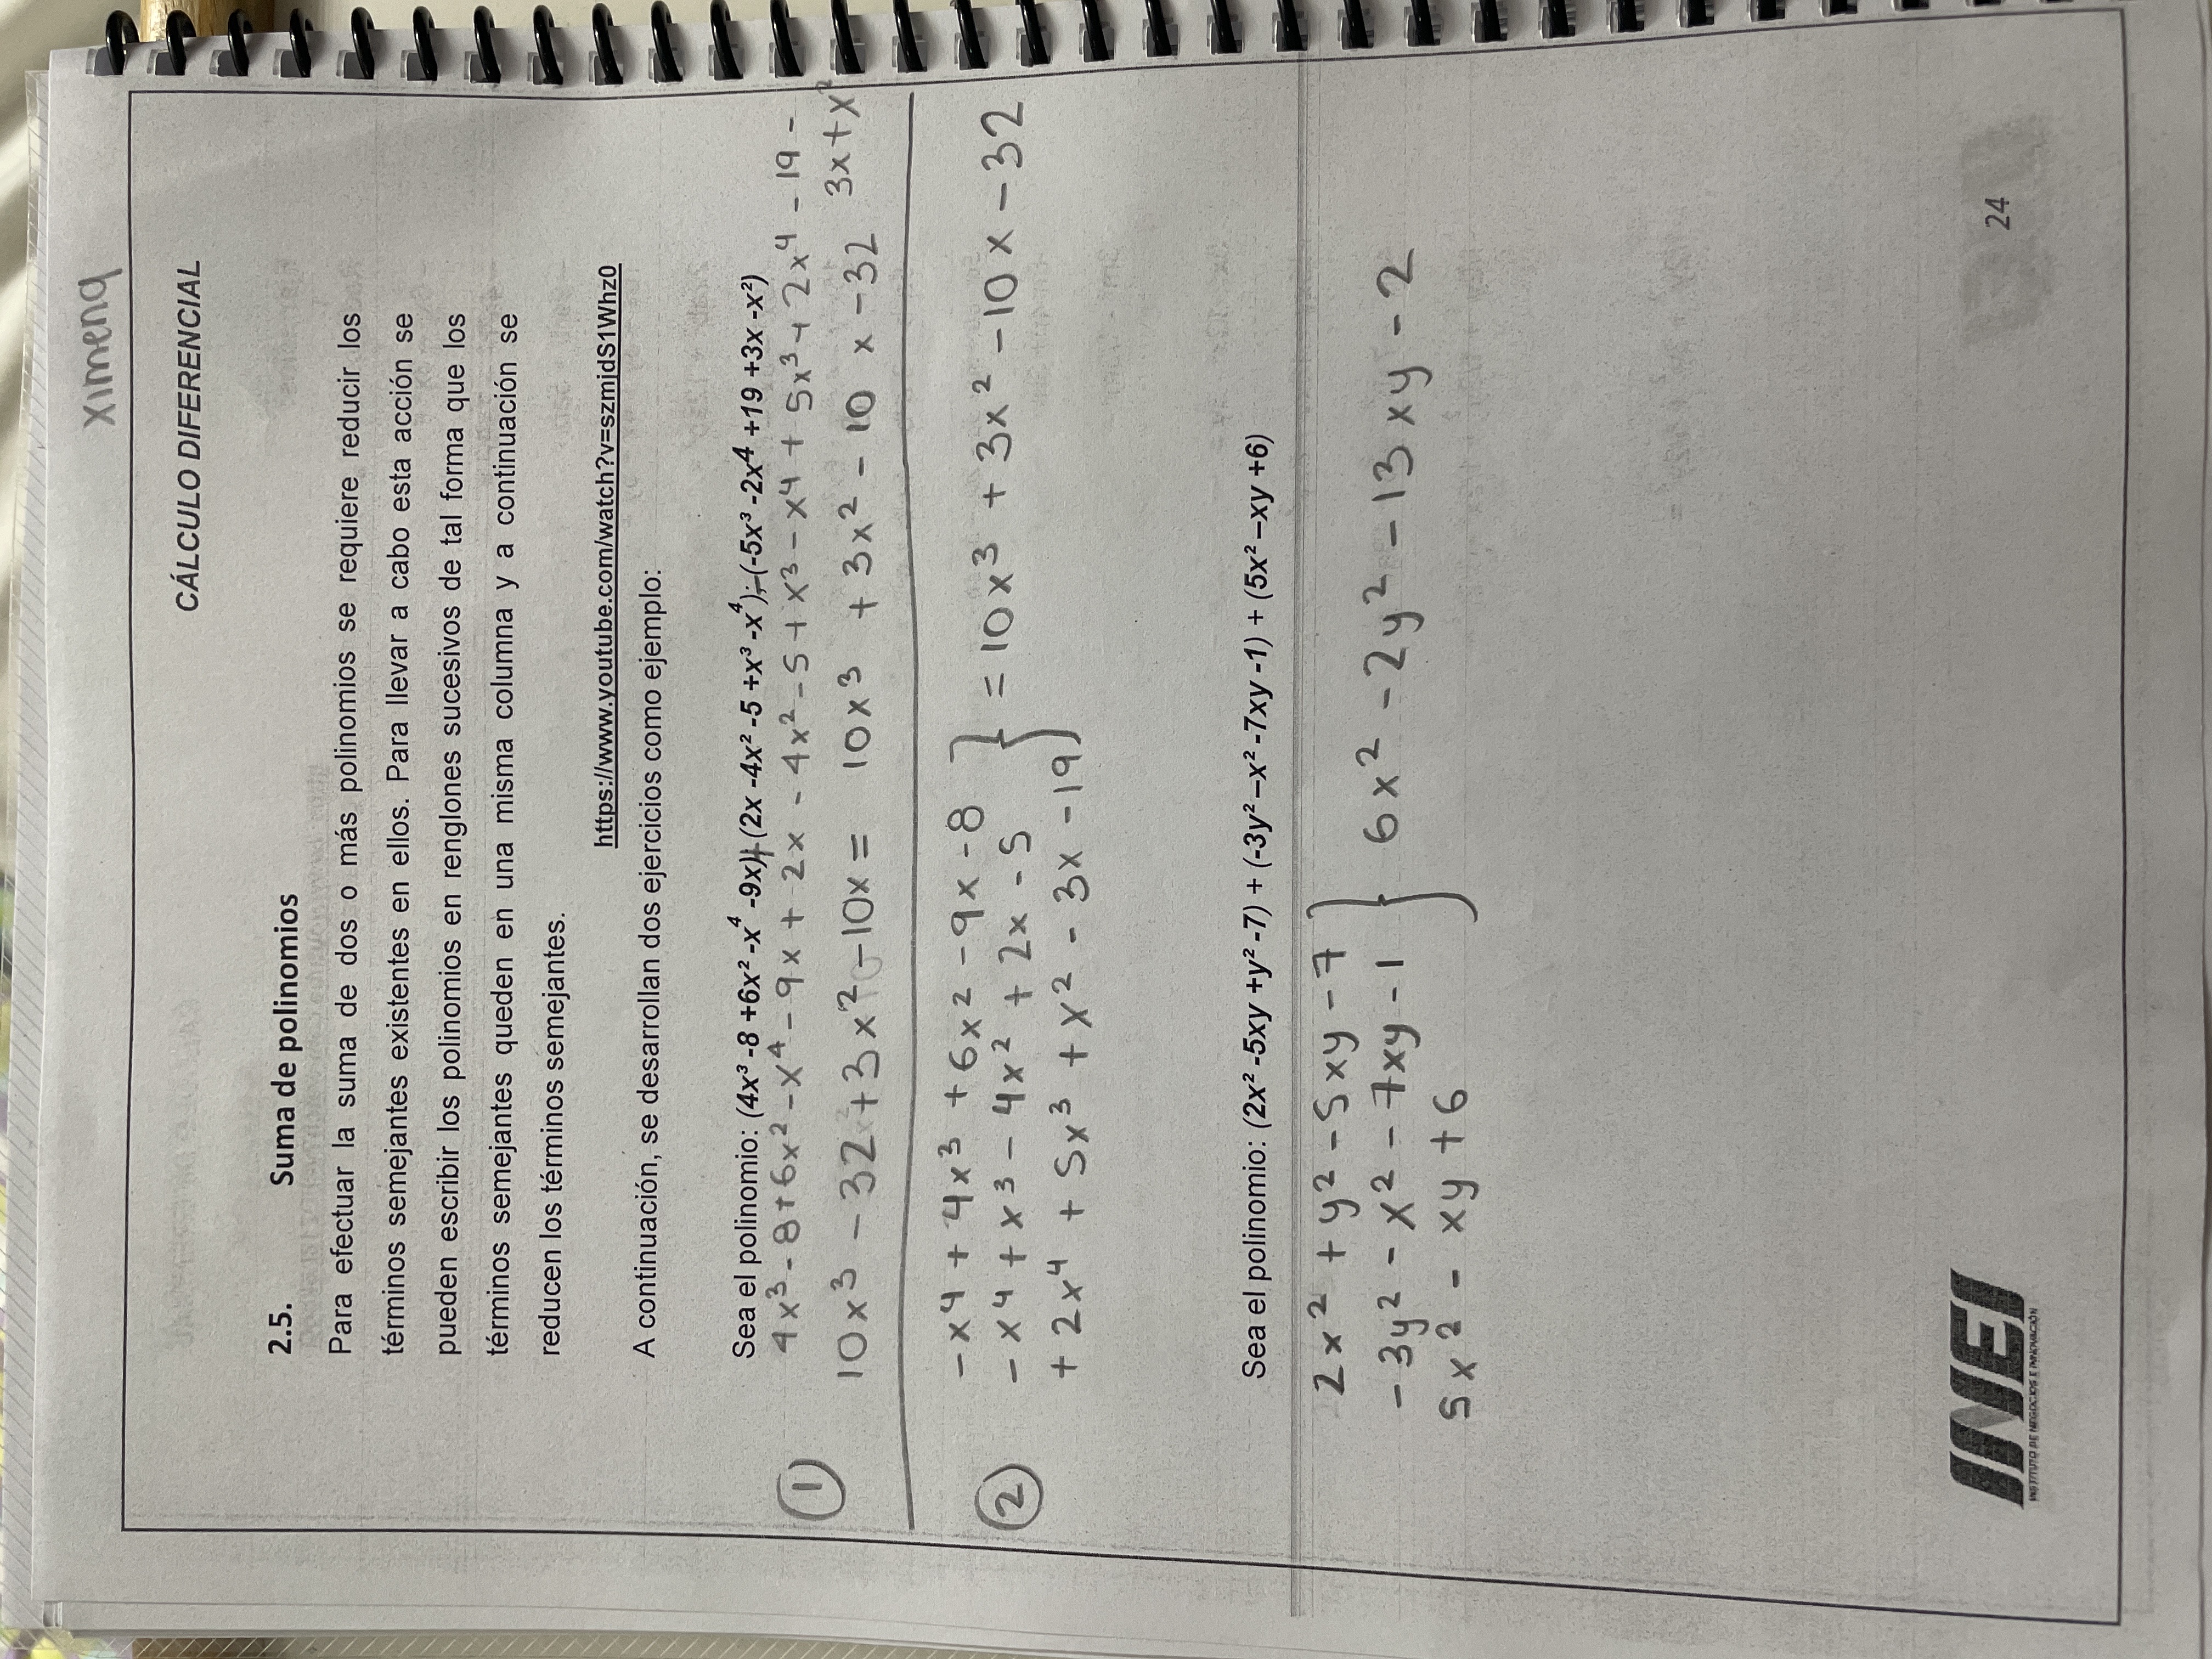 Ximena
CÁLCULO DIFERENCIAL
2.5. Suma de polinomios
Para efectuar la suma de dos o más polinomios se requiere reducir los
términos semejantes existentes en ellos. Para llevar a cabo esta acción se
pueden escribir los polinomios en renglones sucesivos de tal forma que los
términos semejantes queden en una misma columna y a continuación se
reducen los términos semejantes.
https://www.youtube.com/watch?v=szmjdS1Whz0
A continuación, se desarrollan dos ejercicios como ejemplo:
Sea el polinomio: (4x³ -8 +6x² -x⁴ -9x)+(2x -4x² -5 +x³ -x⁴)-(-5x³ -2x⁴ +19 +3x -x²)
① 4x³ - 8 + 6x² - x⁴ - 9x + 2x - 4x² - 5 + x³ - x⁴ + 5x³ + 2x⁴ - 19 -
3x + x²
10x³ - 32 + 3x² - 10x = 10x³ + 3x² - 10 x - 32
② - x⁴ + 4x³ + 6x² - 9x - 8
- x⁴ + x³ - 4x² + 2x - 5 } = 10x³ + 3x² - 10x - 32
+ 2x⁴ + 5x³ + x² - 3x - 19
Sea el polinomio: (2x² -5xy +y² -7) + (-3y² –x² -7xy -1) + (5x² –xy +6)
2x² + y² - 5xy - 7
- 3y² - x² - 7xy - 1 } 6x² - 2y² - 13xy - 2
5x² - xy + 6
INEI
INSTITUTO DE NEGOCIOS E INNOVACIÓN
24